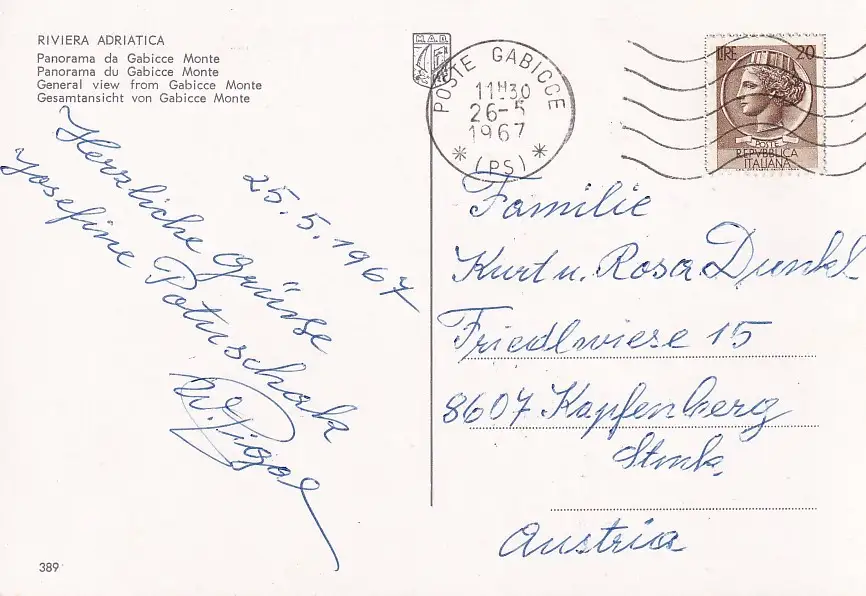 RIVIERA ADRIATICA
Panorama da Gabicce Monte
Panorama du Gabicce Monte
General view from Gabicce Monte
Gesamtansicht von Gabicce Monte
M.A.R.
POSTE GABICCE
11H30
26-5
1967
* (PS) *
LIRE 20
POSTE
REPVBBLICA
ITALIANA
25.5.1967
Herzliche Grüsse
Josefine Potuschak
Familie
Kurt u. Rosa Dunkl
Friedlwiese 15
8607 Kapfenberg
Stmk.
Austria
389